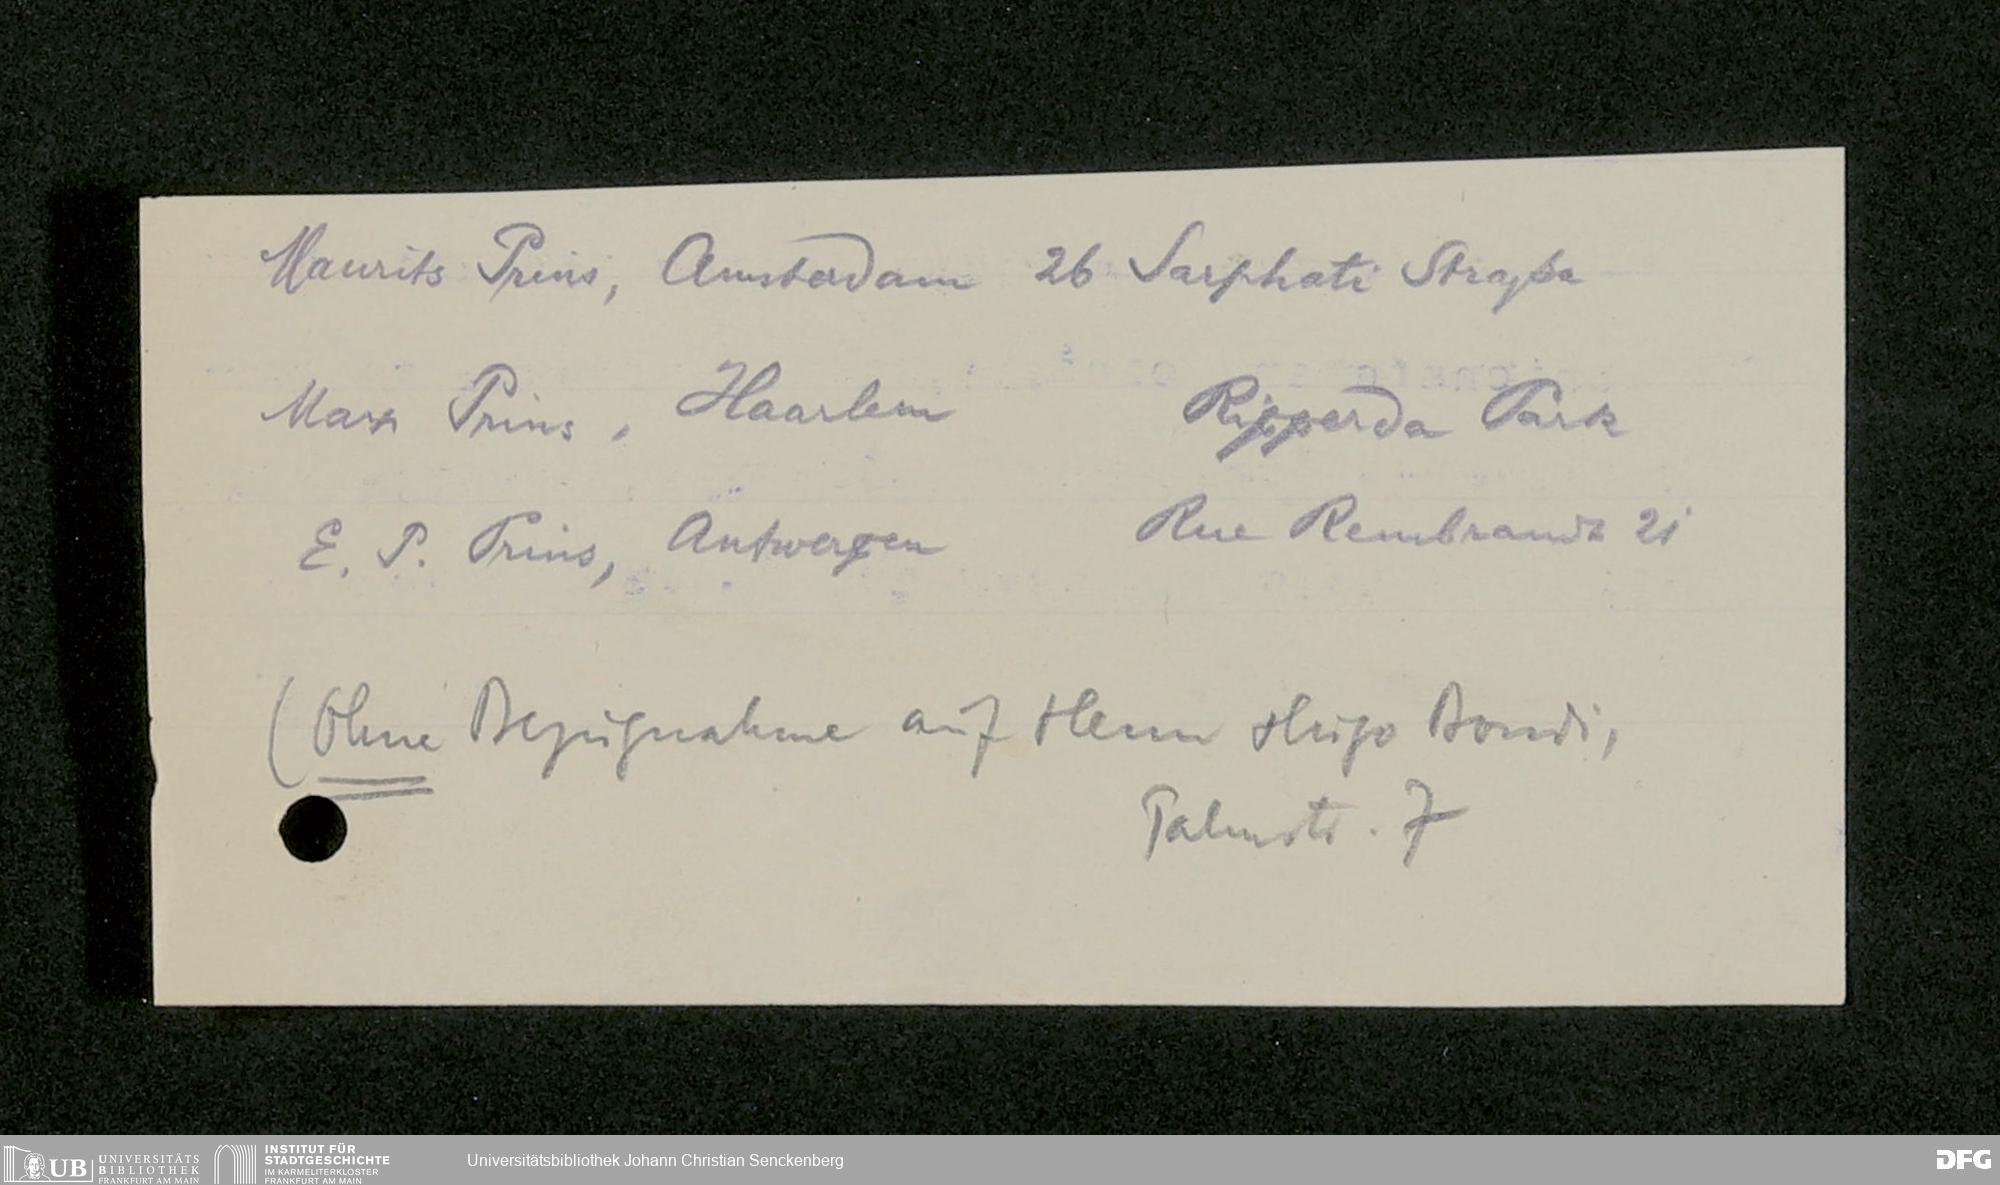 Maurits Prins, Amsterdam 26 Sarphati Straße
Max Prins, Haarlem Ripperda Park
E. P. Prins, Antwerpen Rue Rembrandt 21
(Ohne Bezugnahme auf Herrn Hugo Bondi,
Palmstr. 7
UB UNIVERSITÄTS
BIBLIOTHEK
FRANKFURT AM MAIN
INSTITUT FÜR
STADTGESCHICHTE
IM KARMELITERKLOSTER
FRANKFURT AM MAIN
Universitätsbibliothek Johann Christian Senckenberg
DFG